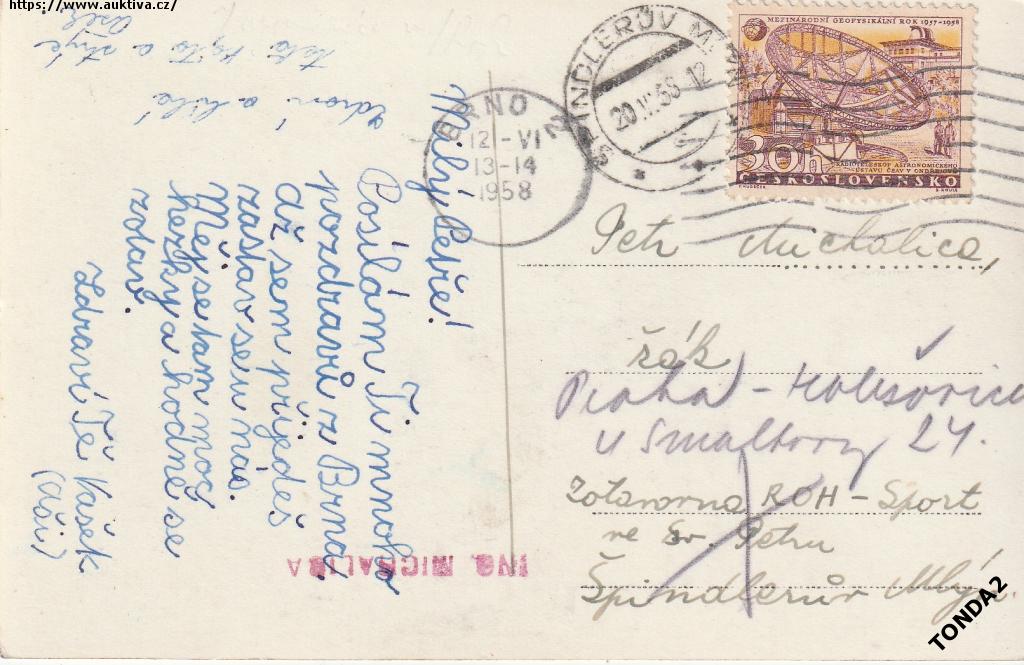 https://www.auktiva.cz/
MEZINÁRODNÍ GEOFYSIKÁLNÍ ROK 1957-1958
30h
RADIOTELESKOP ASTRONOMICKÉHO
ÚSTAVU ČSAV V ONDŘEJOVĚ
ČESKOSLOVENSKO
ŠPINDLERŮV MLÝN
BRNO 2
12-VI
13-14
1958
Milý Petře!
Posílám Ti mnoho
pozdravů z Brna.
Až sem přijedeš
zastav se u nás.
Měj se tam moc
hezky a hodně se
zotav.
Zdraví Tě Vašek
Zdraví a líbá
teta
ING. MICHALICA
Petr Michalica,
žák
Praha - Holešovice
u Smaltovny 24.
Zotavovna ROH - Sport
ve Sv. Petru
Špindlerův Mlýn
TONDA2